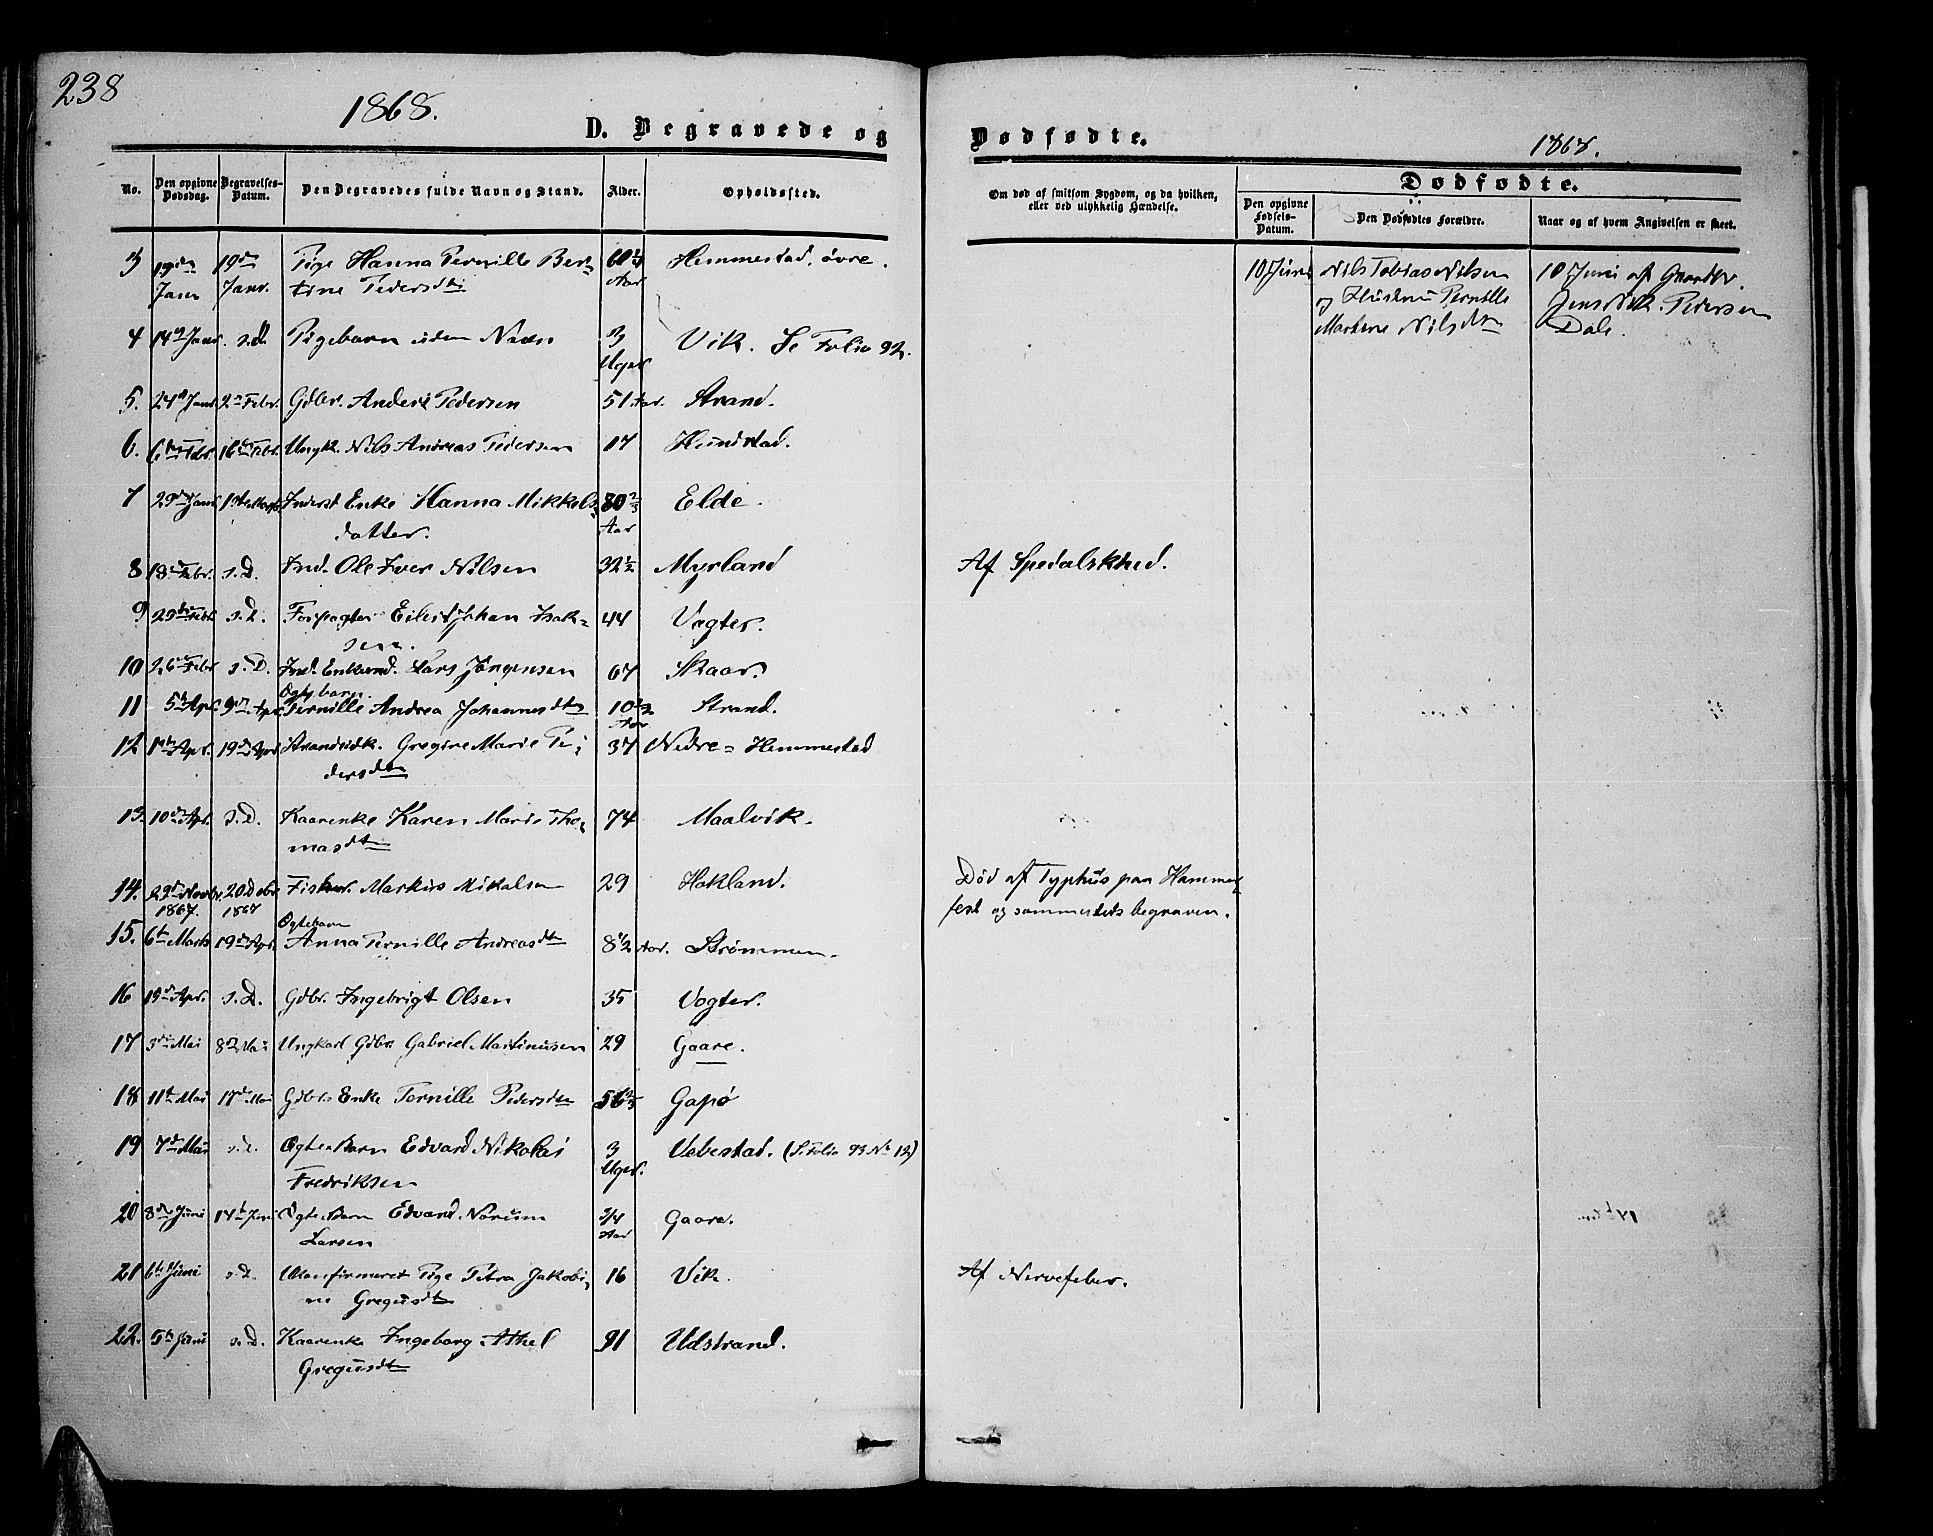 238
1868.
D. Begravede og
No.
Den opgivne Dødsdag.
Begravelses-Datum.
Den Begravedes fulde Navn og Stand.
Alder.
Opholdssted.
3 19de Janr 19de Janr. Pige Hanna Pernille Ber- 60 Aar Hemmestad, øvre.
tine Pedersdtr
4 14de Janr s.d. Pigebarn uden Navn 3 Uger Vik. Se Folio 92.
5. 24de Janr 2den Febr. Gdbr. Anders Pedersen 51 Aar. Strand.
6. 6te Febr. 16de Febr. Ungk. Nils Andreas Pedersen 17 Hundstad.
7 29de Janr 1ste Marts Inderst Enke Hanna Mikkels- 80 2/3 Aar Elde.
datter.
8 18de Febr. s.D. Ind. Ole Iver Nilsen 32 1/2 Myrland
9 29de Febr. s.D. Forpagter Eilert Johan Isak- 44 Vogter.
sen.
10 26de Febr s.D. Ind. Enkemd. Lars Jørgensen 67 Skaar.
Ogtebarn.
11 5te Apr. 9de Apr. Pernille Andrea Johannesdtr 10 Aar Strand.
12 1ste Apr. 19de Apr. Strandsidk. Gregine Marie Pe- 37 Nedre-Hemmestad
dersdtr
13. 10de Apr. s.D. Kaarenke Karen Marie Tho- 74 Maalvik.
masdtr
14. 29de Novbr. 1867. 20 Debr 1867 Fisker. Markus Mikalsen 29 Hokland.
Ogtebarn
15. 6te Marts 19de Apr. Anna Pernille Andreasdtr 8 1/2 Aar. Strømmen.
16 19de Apr. s.D. Gdbr. Ingebrigt Olsen 35 Vogter.
17 3die Mai 8de Mai Ungkarl Gdbr. Gabriel Martinussen 29 Gaare.
18 11te Mai 17de Mai Gdbrs Enke Pernille Pedersdtr 56 2/3 Gapø
19 7de Mai s.d. Ogte Barn Edvard Nikolai 3 Uger. Vebestad. (S. Folio 93 No 12)
Fredriksen
20 8de Juni 14de Juni Ogte Barn Edvard Norum 3/4 Aar Gaare.
Larsen
21 6te Juni s.d. Ukonfirmeret Pige Petra Jakobi- 16 Vik.
ne Gregusdtr
22. 5te Juni s.D. Kaarenke Ingeborg Athel 91 Udstrand.
Gregusdtr
Dødfødte.
1868.
Om død af smitsom Sygdom, og da hvilken,
eller ved ulykkelig Hændelse.
Dødfødte.
Den opgivne Fødsels-Datum.
Den Dødfødtes Forældre.
Naar og af hvem Angivelsen er skeet.
10 Juni Nils Tobias Nilsen 10 Juni af Gaardbr.
og Hustru Pernille Jens Nik. Pedersen
Martene Nilsdtr Dale.
Af Spedalskhed.
Død af Typhus paa Hammer-
fest og sammesteds begraven.
Af Nervefeber.